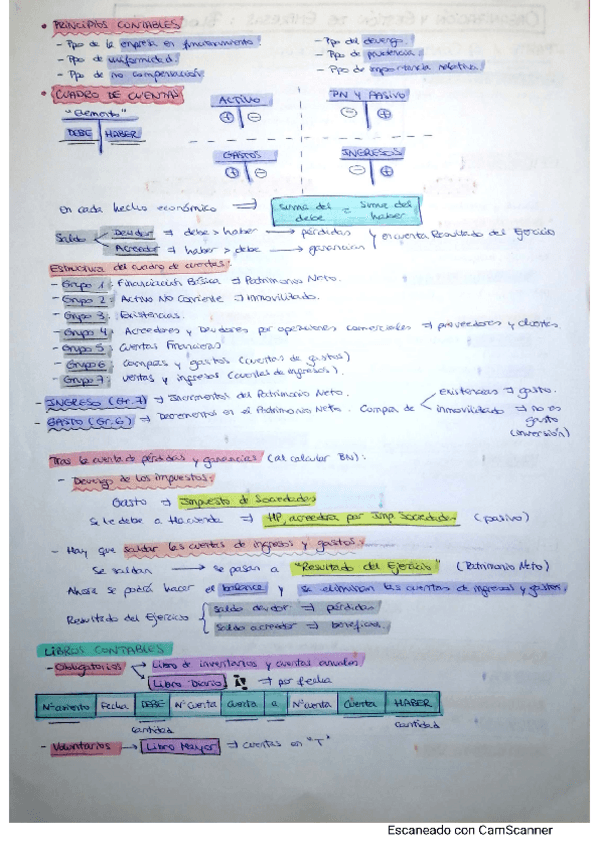 • PRINCIPIOS CONTABLES
- Ppo de la empresa en funcionamiento. - Ppo del devengo.
- Ppo de uniformidad. - Ppo de prudencia.
- Ppo de no compensación. - Ppo de importancia relativa.
• CUADRO DE CUENTAS
ACTIVO PN Y PASIVO
"Elemento" + - - +
DEBE HABER
GASTOS INGRESOS
+ - - +
En cada hecho económico ⇒ suma del debe = suma del haber
Saldo Deudor ⇒ debe > haber → pérdidas y en cuenta Resultado del Ejercicio
Acreedor ⇒ haber > debe → ganancias
Estructura del cuadro de cuentas:
- Grupo 1: Financiación Básica ⇒ Patrimonio Neto.
- Grupo 2: Activo No Corriente ⇒ inmovilizado.
- Grupo 3: Existencias.
- Grupo 4: Acreedores y Deudores por operaciones comerciales ⇒ proveedores y clientes
- Grupo 5: Cuentas Financieras
- Grupo 6: compras y gastos (cuentas de gastos)
- Grupo 7: ventas y ingresos (cuentas de ingresos).
- INGRESO (Gr.7) ⇒ Incrementos del Patrimonio Neto. existencias ⇒ gasto.
- GASTO (Gr.6) ⇒ Decrementos en el Patrimonio Neto. Compra de inmovilizado ⇒ no es gasto (inversión)
Tras la cuenta de pérdidas y ganancias (al calcular BN):
- Devengo de los impuestos:
Gasto ⇒ Impuesto de Sociedades
Se le debe a Hacienda ⇒ HP, acreedora por Imp Sociedades (pasivo)
- Hay que saldar las cuentas de ingresos y gastos.
Se saldan → se pasan a "Resultado del Ejercicio" (Patrimonio Neto)
Ahora se podrá hacer el balance y se eliminan las cuentas de ingresos y gastos.
Resultado del Ejercicio { saldo deudor ⇒ pérdidas
saldo acreedor ⇒ beneficios.
LIBROS CONTABLES
- Obligatorios → Libro de inventarios y cuentas anuales
Libro Diario ⇒ por fecha
Nº asiento Fecha DEBE Nº cuenta cuenta a Nº cuenta Cuenta HABER
cantidad cantidad
- Voluntarios → Libro Mayor ⇒ cuentas en "T"
Escaneado con CamScanner